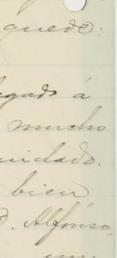 quede:
gado á
mucho
uidado.
bien
D. Alfonso,